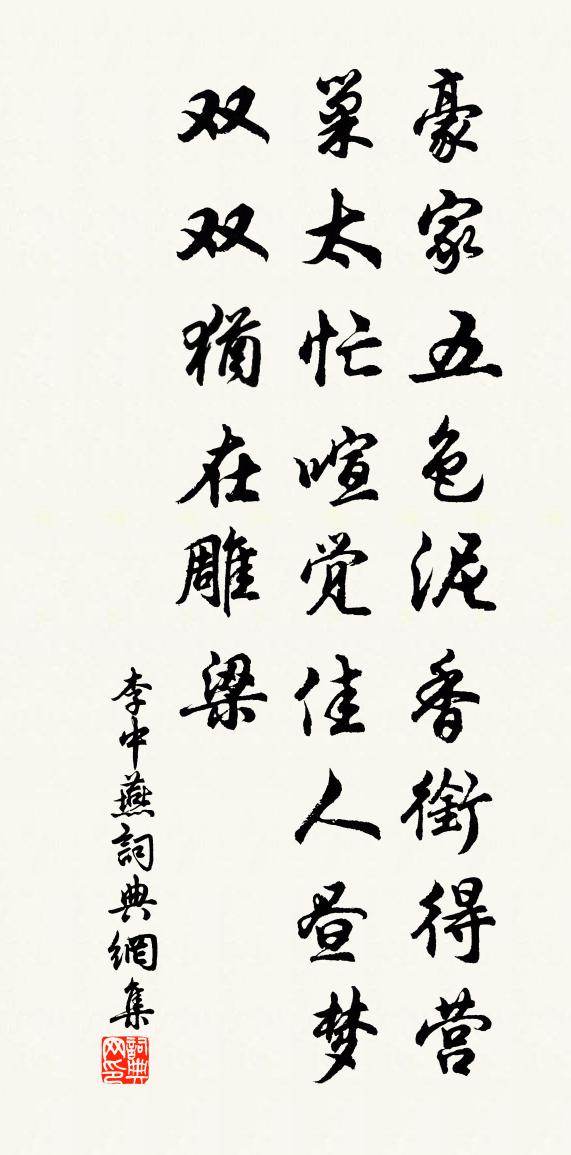 豪家五色泥香銜得营
巢太忙喧觉佳人昼梦
双双猶在雕梁
李中燕詞典網集
詞典网印